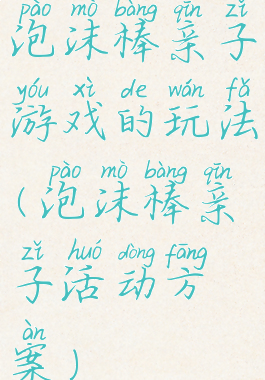 pào mò bàng qīn zǐ
泡沫棒亲子
yóu xì de wán fǎ
游戏的玩法
pào mò bàng qīn
（泡沫棒亲
zǐ huó dòng fāng
子活动方
àn
案）